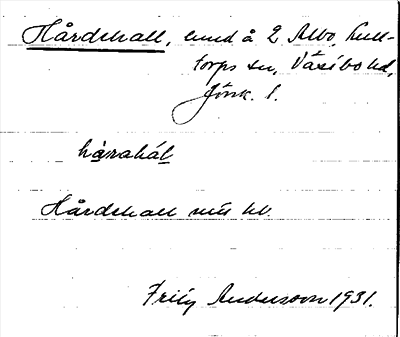 Hårdehall, lund å 2 Albo, Kull-
torps sn, Västbo hd,
Jönk. l.
hàrahál
Hårdehall mis kl.
Fritz Andersson 1931.